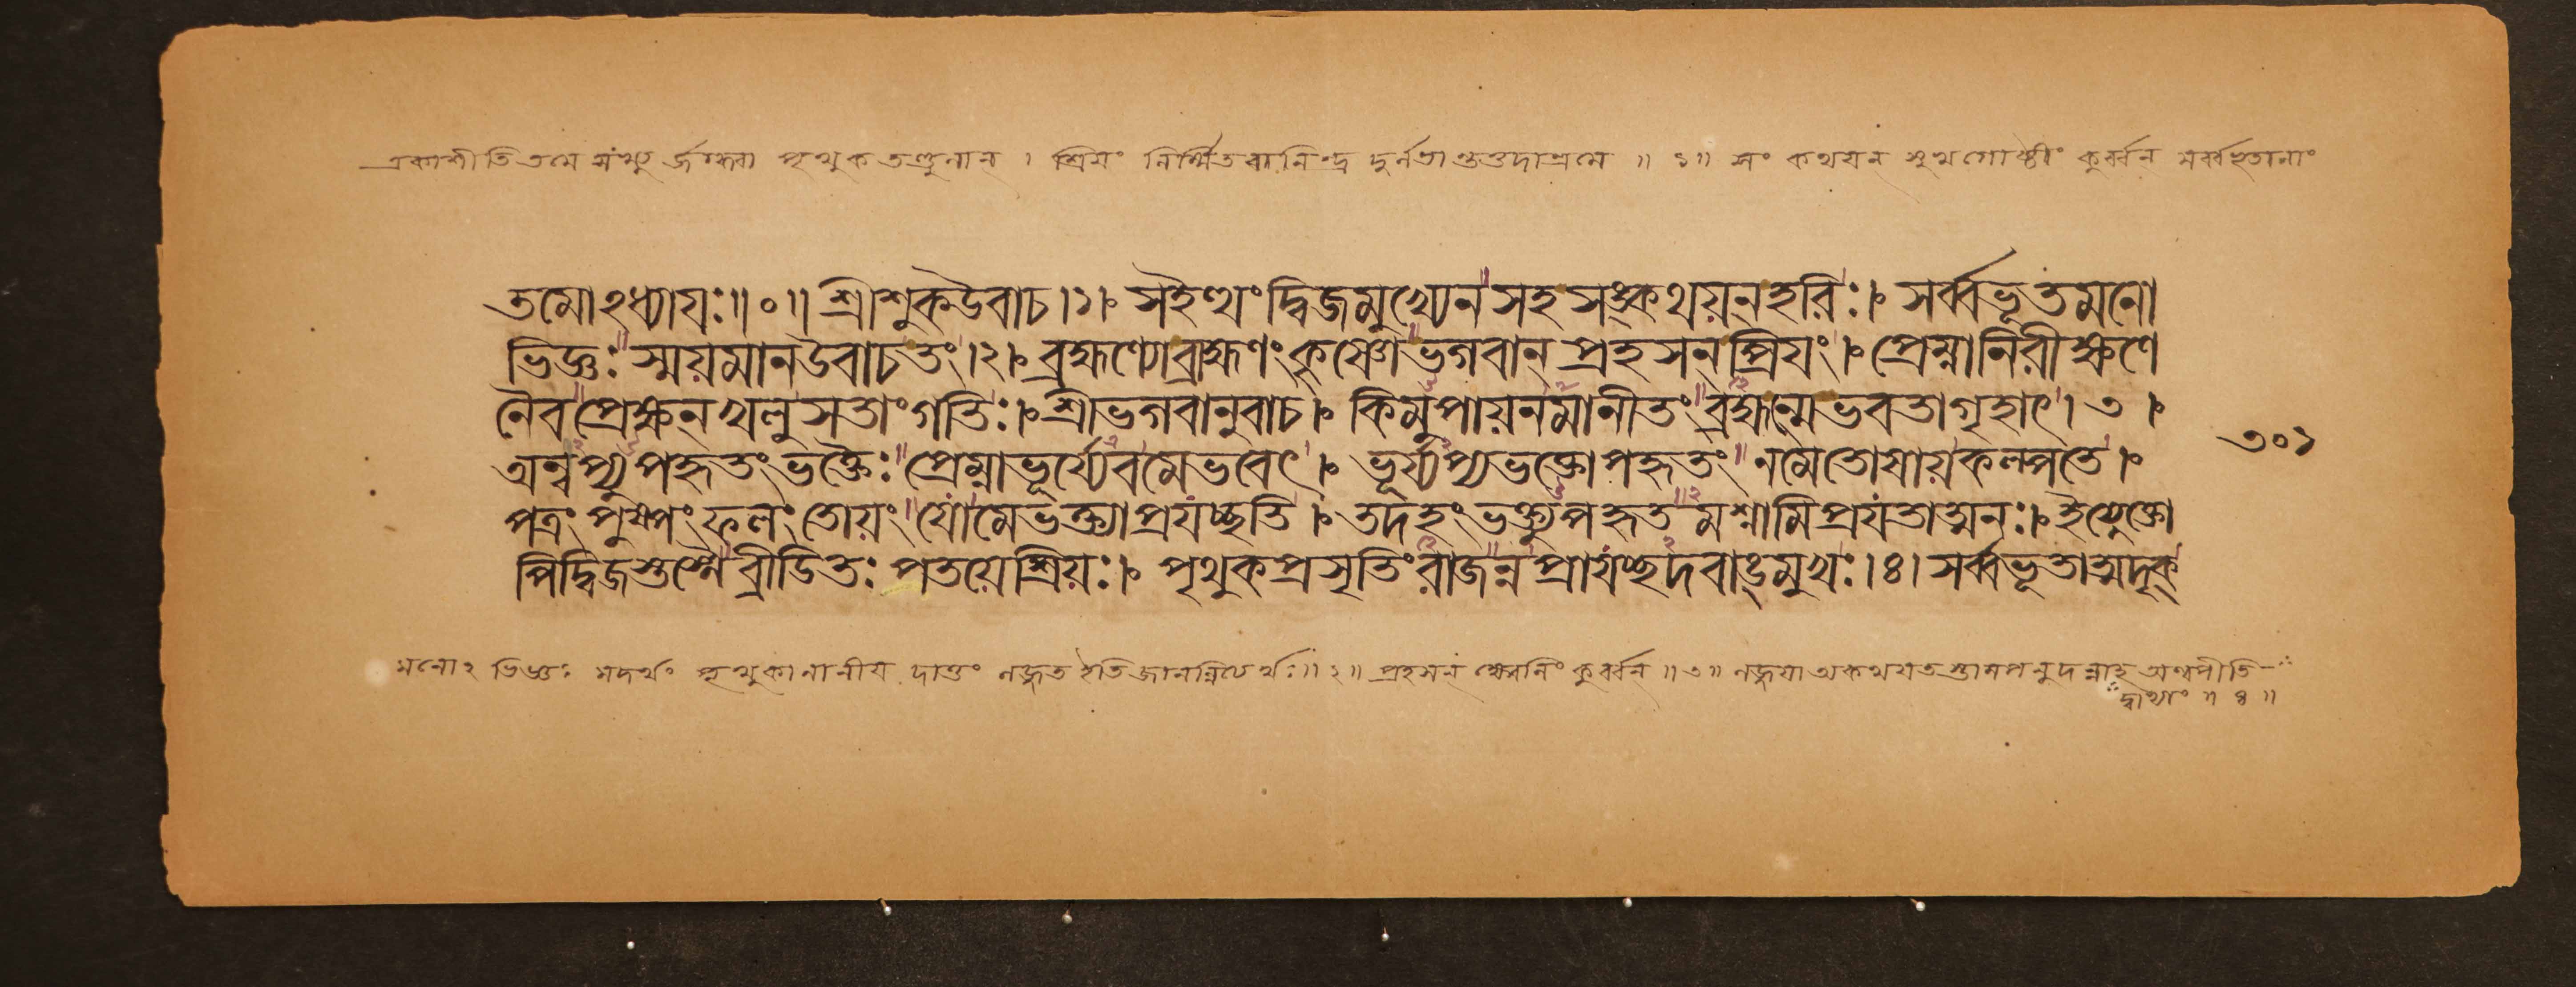 একাশীতিতমে সংখ্যুর্জগ্ধ্বা পৃথুকতণ্ডুলান্ । শ্রিয়ং নির্ম্মিতবানিন্দ্র দুর্লভাং তদাশ্রমে ॥ ১॥ সং কথয়ন্ সুখগোষ্ঠীং কুর্ব্বন্ সর্ব্বভূতানাং
তমোঽধ্যায়ঃ॥০॥ শ্রীশুকউবাচ।১। সইত্থং দ্বিজমুখ্যেন সহ সঙ্কথয়ন্হরিঃ। সর্ব্বভূতমনো
ভিজ্ঞঃ স্ময়মানউবাচতং।২। ব্রহ্মণ্যোব্রাহ্মণংকৃষ্ণোভগবান্ প্রহসন্প্রিয়ং। প্রেম্নানিরীক্ষণে
নৈব প্রেক্ষন্খলু সতাংগতিঃ। শ্রীভগবানুবাচ। কিমুপায়নমানীতং ব্রহ্মন্মেভবতাগৃহাৎ। ৩ ।
অন্বপ্যুপহৃতংভক্তৈঃ প্রেম্নাভূর্য্যেবমেভবেৎ। ভূর্য্যপ্যভক্তোপহৃতং নমেতোষায়কল্পতে।
পত্রং পুষ্পং ফলং তোয়ং যোমেভক্ত্যাপ্রযচ্ছতি। তদহংভক্ত্যুপহৃতমশ্নামিপ্রযতাত্মনঃ। ইত্যুক্তো
পিদ্বিজস্তস্মৈব্রীডিতঃ পতয়েশ্রিয়ঃ। পৃথুকপ্রসৃতিংরাজন্নপ্রাযচ্ছদবাঙ্মুখঃ।৪। সর্ব্বভূতাত্মদৃক্
৩০১
মনোঽ ভিজ্ঞঃ মদর্থং পৃথুকানানীয় দাতুং লজ্জত ইতিজানন্নিত্যর্থঃ॥২॥ প্রহসনং কুর্ব্বন্ ॥৩॥ লজ্জয়া অকথয়ত অণ্বপীতি
দ্বাভ্যাং ॥ ৪ ॥